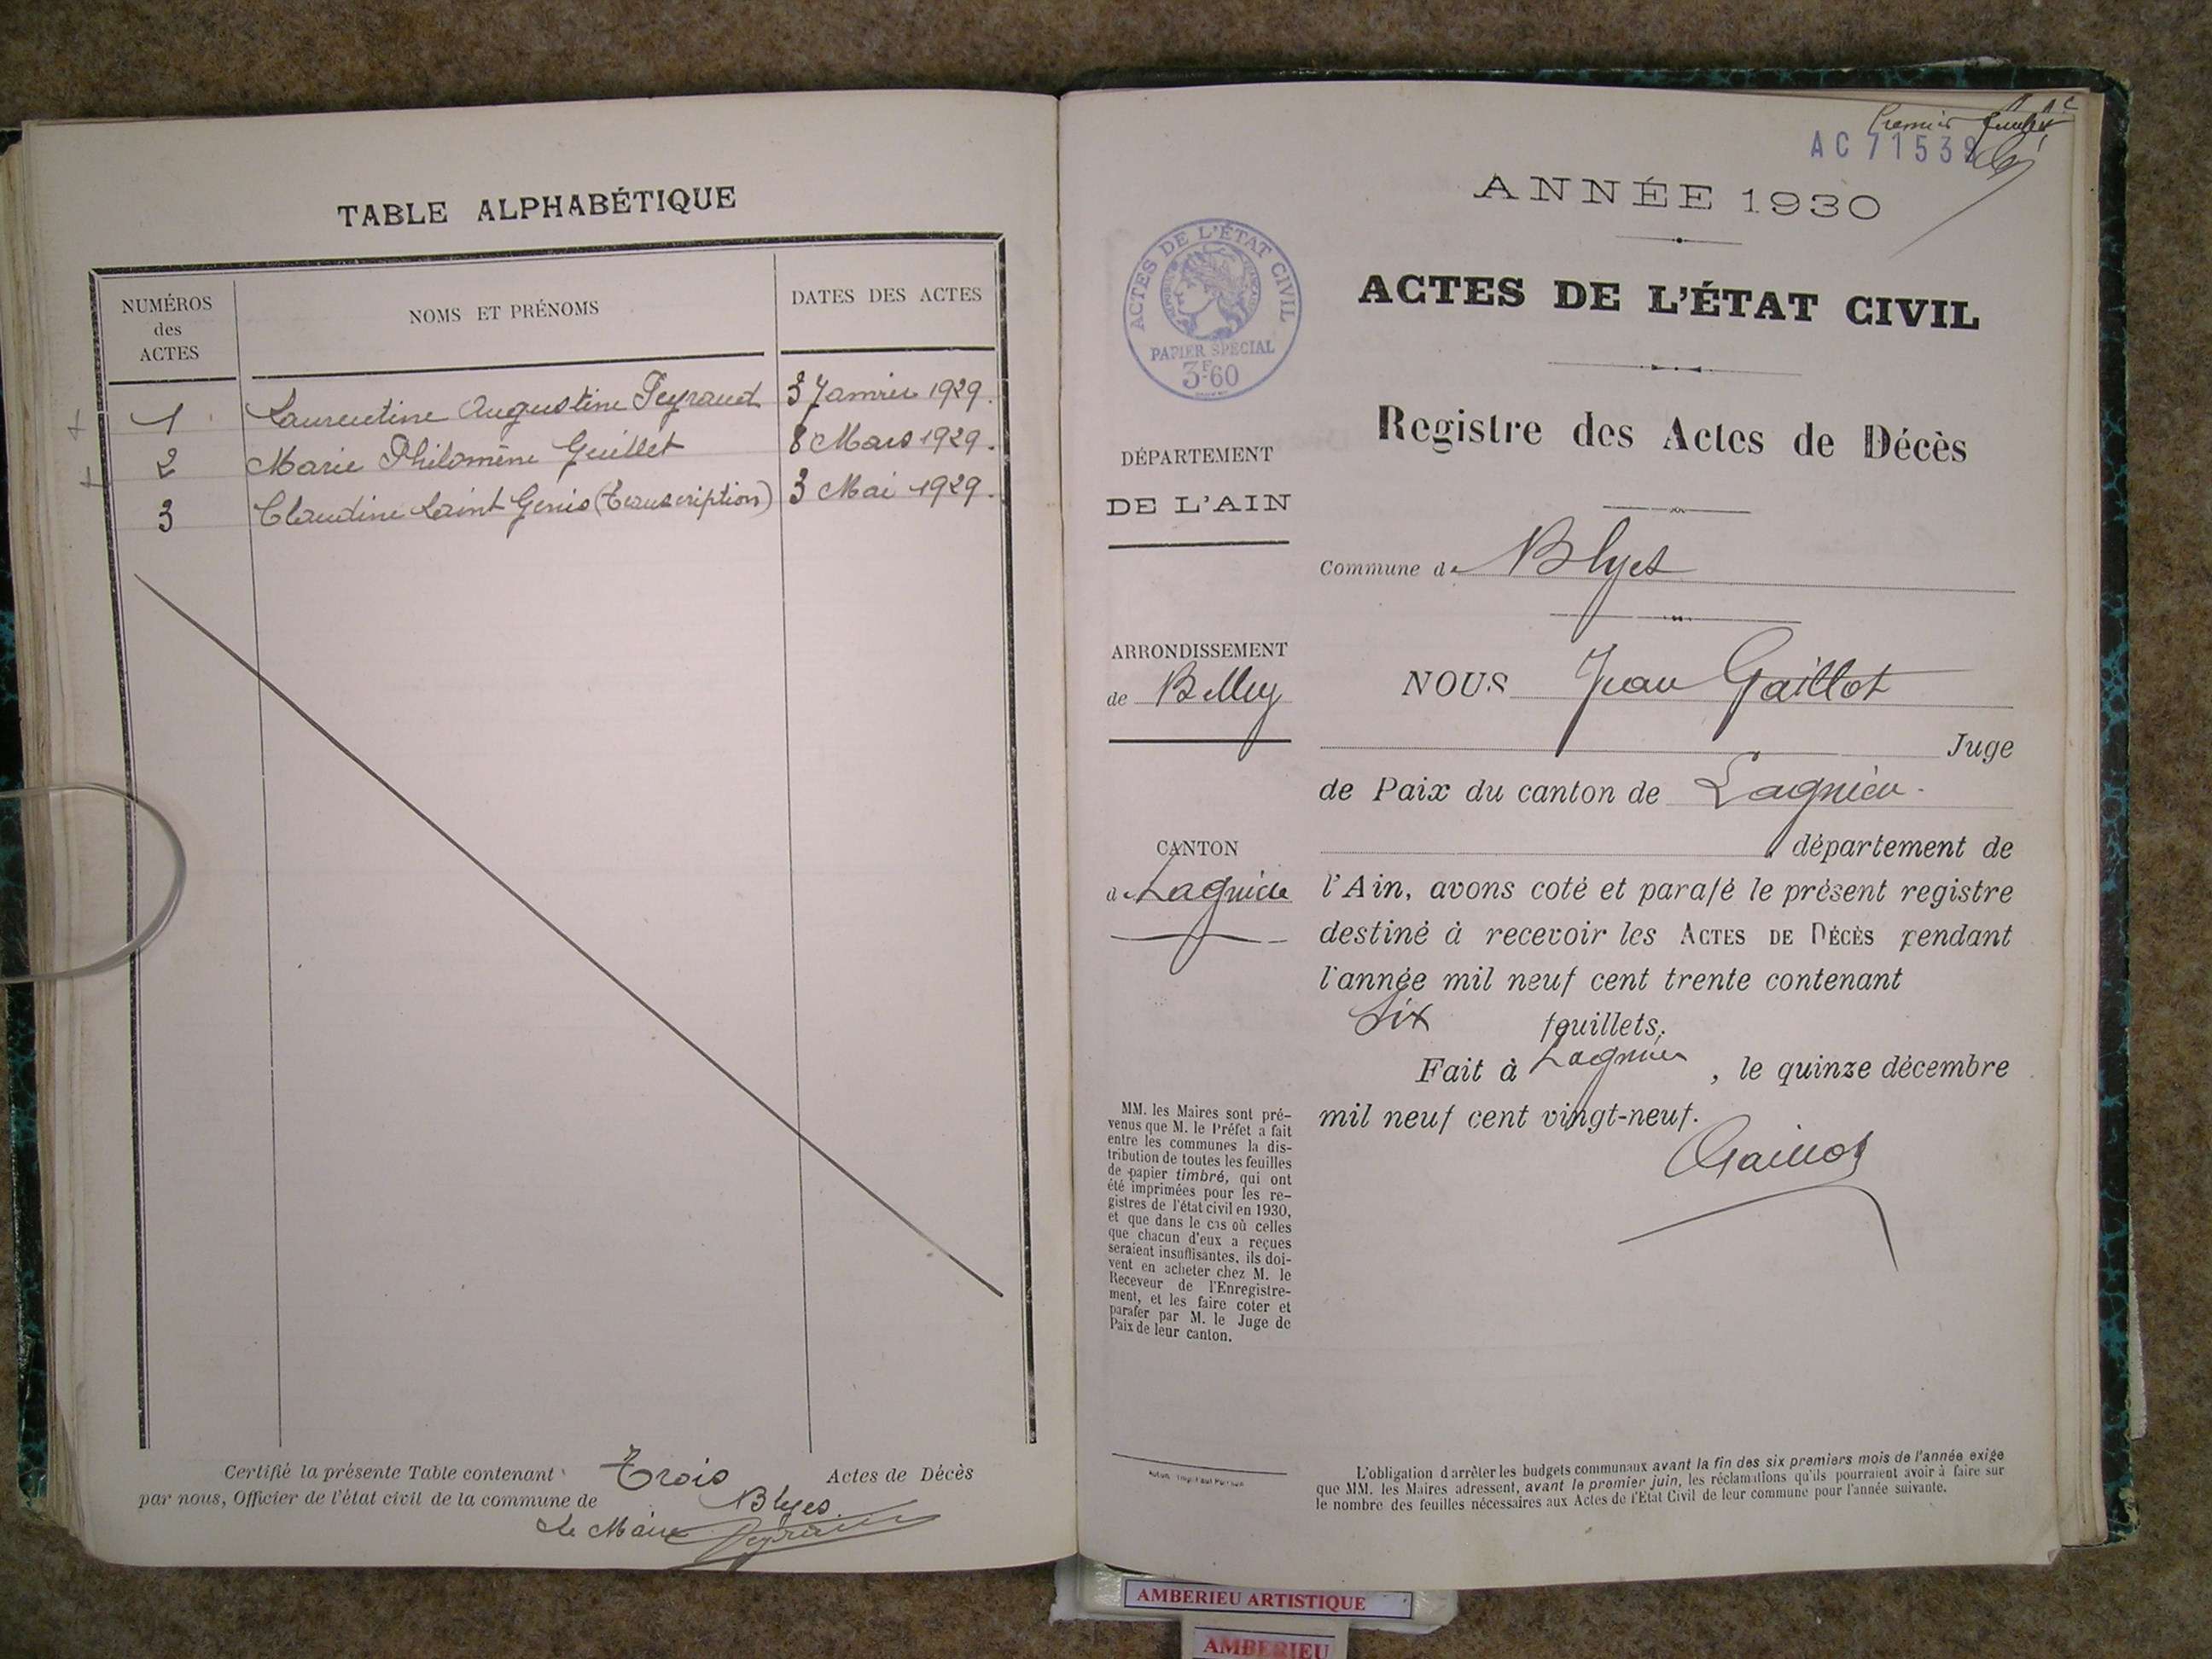 TABLE ALPHABÉTIQUE
NUMÉROS
des
ACTES
NOMS ET PRÉNOMS
DATES DES ACTES
1 Laurentine Augustine Peyraud 3 Janvier 1929.
2 Marie Philomène Guillet 8 Mars 1929.
3 Claudine Saint Genis (Transcription) 3 Mai 1929.
Certifié la présente Table contenant Trois Actes de Décès
par nous, Officier de l'état civil de la commune de
Blyes
Le Maire
Premier
AC 71539
ANNÉE 1930
ACTES DE L'ÉTAT CIVIL
PAPIER SPÉCIAL
3F60
ACTES DE L'ÉTAT CIVIL
Registre des Actes de Décès
DÉPARTEMENT
DE L'AIN
Commune de Blyes
ARRONDISSEMENT
de Belley
NOUS Jean Gaillot
Juge
de Paix du canton de Lagnieu.
CANTON
de Lagnieu
département de
l'Ain, avons coté et parafé le présent registre
destiné à recevoir les ACTES DE DÉCÈS pendant
l'année mil neuf cent trente contenant
Six feuillets.
Fait à Lagnieu, le quinze décembre
mil neuf cent vingt-neuf.
Gaillot
MM. les Maires sont pré-
venus que M. le Préfet a fait
entre les communes la dis-
tribution de toutes les feuilles
de papier timbré, qui ont
été imprimées pour les re-
gistres de l'état civil en 1930,
et que dans le cas où celles
que chacun d'eux a reçues
seraient insuffisantes, ils doi-
vent en acheter chez M. le
Receveur de l'Enregistre-
ment, et les faire coter et
parafer par M. le Juge de
Paix de leur canton.
L'obligation d'arrêter les budgets communaux avant la fin des six premiers mois de l'année exige
que MM. les Maires adressent, avant le premier juin, les réclamations qu'ils pourraient avoir à faire sur
le nombre des feuilles nécessaires aux Actes de l'Etat Civil de leur commune pour l'année suivante.
AMBERIEU ARTISTIQUE
AMBERIEU